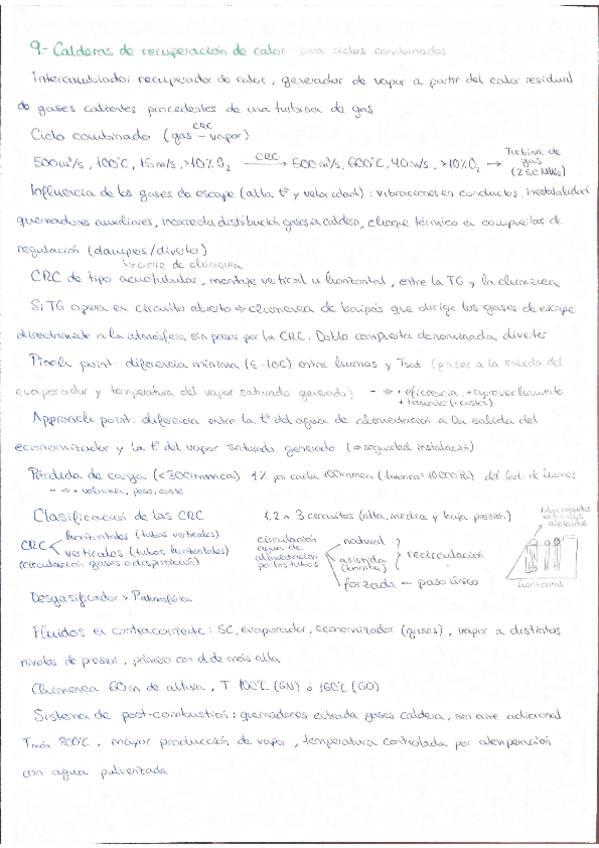 9.- Calderas de recuperación de calor para ciclos combinados
Intercambiador recuperador de calor, generador de vapor a partir del calor residual
de gases calientes procedentes de una turbina de gas
Ciclo combinado (gas - vapor)
CRC
500 m³/s, 100°C, 15 m/s, >10% O₂ CRC → 500 m³/s, 600°C, 40 m/s, >10% O₂ → Turbina de gas
Influencia de los gases de escape (alta tª y velocidad): vibraciones en conductos, inestabilidad
quemadores auxiliares, incorrecta distribución gases en caldera, choque térmico en compuertas de
regulación (dampers/diverter)
↳ cierre de chimenea
CRC de tipo acuotubular, montaje vertical u horizontal, entre la TG y la chimenea
Si TG opera en circuito abierto ⇒ chimenea de baipás que dirige los gases de escape
directamente a la atmósfera, sin pasar por la CRC. Doble compuerta denominada diverter
Pinch point: diferencia mínima (5-10C) entre humos y Tsat (gases a la salida del
evaporador y temperatura del vapor saturado generado) - ⇒ + eficiencia, + aprovechamiento
+ tamaño (+ costes)
Approach point: diferencia entre la tª del agua de alimentación a la salida del
economizador y la tª del vapor saturado generado (⇒ seguridad instalación)
Pérdida de carga (<300mmca) 1% por cada 100mmca del lado de humos
- ⇒ + volumen, peso, coste
Clasificación de las CRC 1, 2 o 3 circuitos (alta, media y baja presión)
CRC horizontales (tubos verticales)
verticales (tubos horizontales)
(circulación gases o disposición)
circulación agua de alimentación por los tubos
natural
asistida (bomba)
recirculación
forzada - paso único
verticales
aletados
horizontal
Desgasificador > Patmosférica
Fluidos en contracorriente: SC, evaporador, economizador (gases), vapor a distintos
niveles de presión, primero con el de más alta
Chimenea 60m de altura, T 100°C (GN) o 160°C (GO)
Sistema de post-combustión: quemadores entrada gases caldera, sin aire adicional
Tmáx 800°C, mayor producción de vapor, temperatura controlada por atemperación
con agua pulverizada